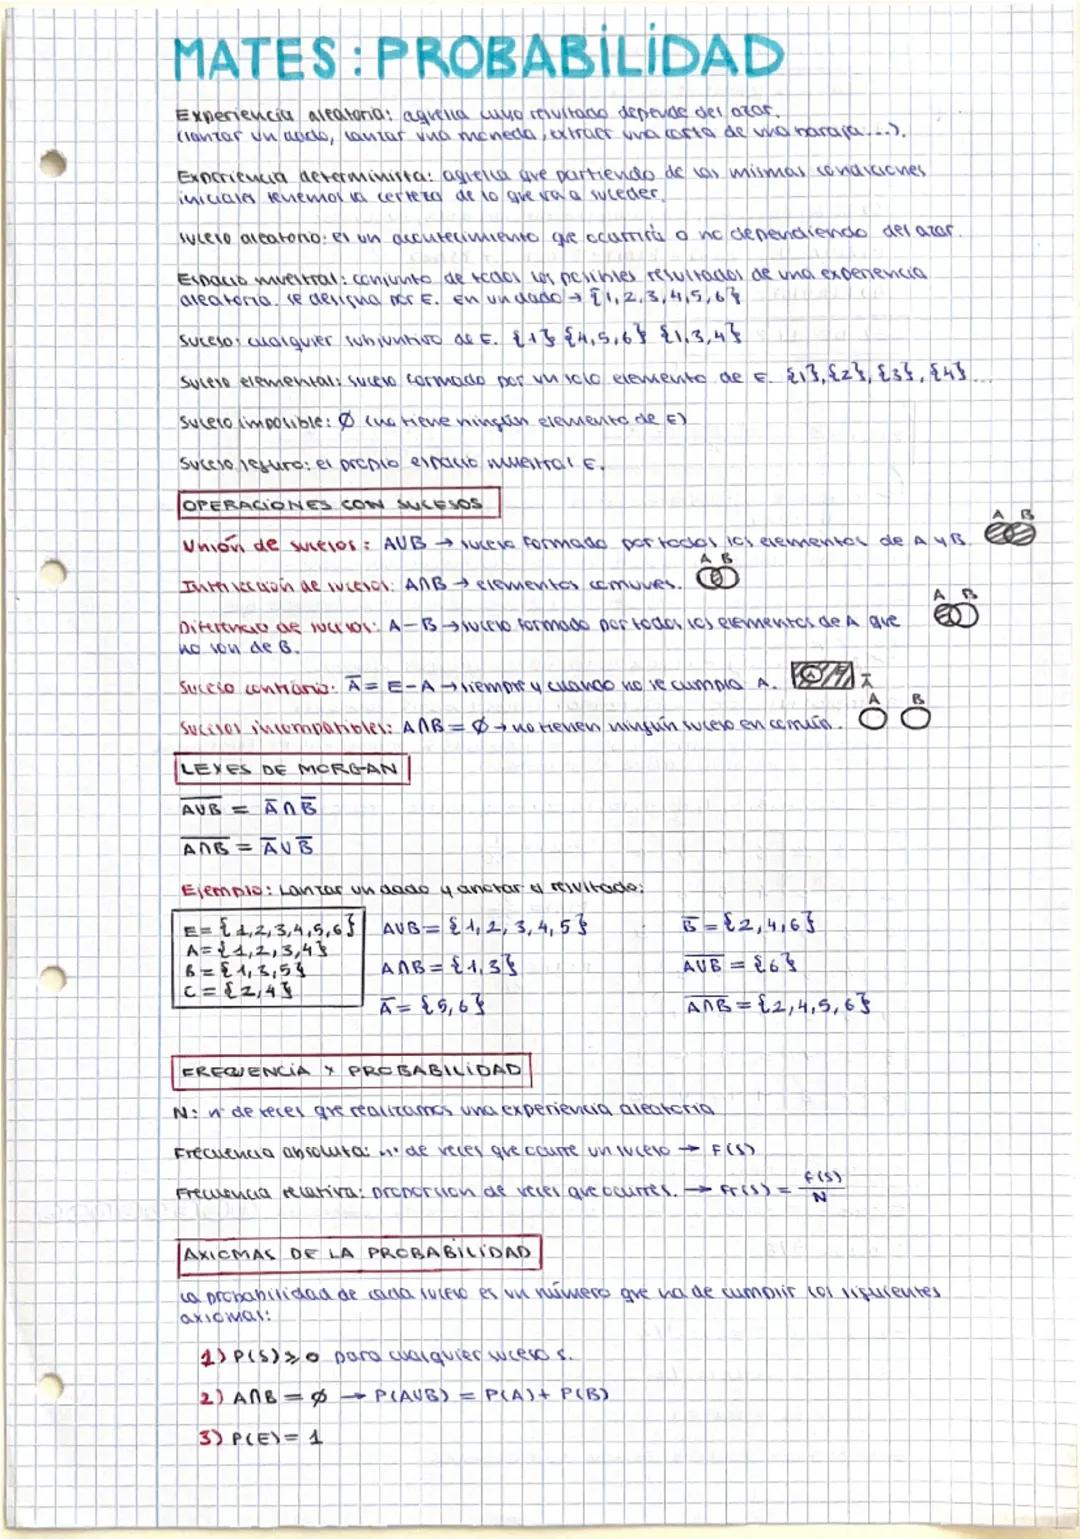 MATES: PROBABILIDAD
Experiencia aleatoria: aquella cuyo resultado depende del azar.
(lanzar un dado, lanzar una moneda, extraer una carta de una baraja...).
Experiencia determinista: aquella que partiendo de las mismas condiciones
iniciales tenemos la certeza de lo que va a suceder.
Suceso aleatorio: es un acontecimiento que ocurrirá o no dependiendo del azar.
Espacio muestral: conjunto de todos los posibles resultados de una experiencia
aleatoria. Se designa por E. En un dado → {1,2,3,4,5,6}
Suceso: cualquier subjuntivo de E. {1} {4,5,6} {1,3,4}
Suceso elemental: suceso formado por un solo elemento de E. {1},{2},{3},{4}...
Suceso imposible: Ø (no tiene ningún elemento de E)
Suceso seguro: el propio espacio muestral E.
OPERACIONES CON SUCESOS
A B
Unión de sucesos: AUB → suceso formado por todos los elementos de A y B.
A B
Intersección de sucesos: A∩B → elementos comunes.
A B
Diferencia de sucesos: A-B → suceso formado por todos los elementos de A que
no son de B.
Suceso contrario: A̅ = E-A → siempre y cuando no se cumpla A. A A̅
A B
Sucesos incompatibles: A∩B = Ø → no tienen ningún suceso en común.
LEYES DE MORGAN
A̅U̅B̅ = A̅ ∩ B̅
A̅∩̅B̅ = A̅ U B̅
Ejemplo: Lanzar un dado y anotar el resultado:
E = {1,2,3,4,5,6} AUB = {1,2,3,4,5} B̅ = {2,4,6}
A = {1,2,3,4}
B = {1,3,5} A∩B = {1,3} A̅U̅B̅ = {6}
C = {2,4}
A̅ = {5,6} A̅∩̅B̅ = {2,4,5,6}
FRECUENCIA Y PROBABILIDAD
N: nº de veces que realizamos una experiencia aleatoria
Frecuencia absoluta: nº de veces que ocurre un suceso → F(S)
Frecuencia relativa: proporción de veces que ocurres. → Fr(S) = F(S)/N
AXIOMAS DE LA PROBABILIDAD
La probabilidad de cada suceso es un número que ha de cumplir los siguientes
axiomas:
1) P(S) ≥ 0 para cualquier suceso S.
2) A∩B = Ø → P(AUB) = P(A) + P(B)
3) P(E) = 1